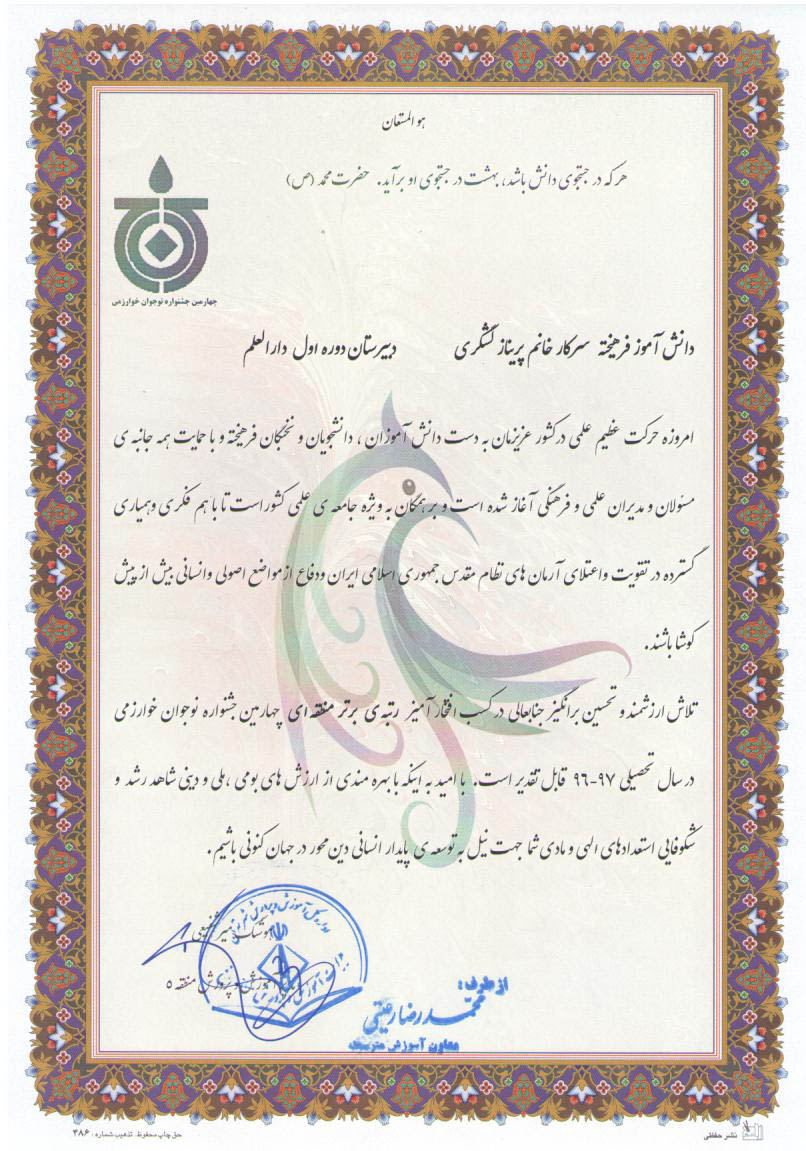 هو المستعان
هر که در جستجوی دانش باشد، بهشت در جستجوی او برآید. حضرت محمد (ص)
چهارمین جشنواره نوجوان خوارزمی
دانش آموز فرهیخته سرکار خانم پریناز لشگری دبیرستان دوره اول دارالعلم
امروزه حرکت عظیم علمی درکشور عزیزمان به دست دانش آموزان ، دانشجویان و نخبگان فرهیخته و با حمایت همه جانبه ی
مسئولان و مدیران علمی و فرهنگی آغاز شده است و بر همگان به ویژه جامعه ی علمی کشور است تا با هم فکری وهمیاری
گسترده در تقویت واعتلای آرمان های نظام مقدس جمهوری اسلامی ایران ودفاع از مواضع اصولی وانسانی بیش از پیش
کوشا باشند.
تلاش ارزشمند و تحسین برانگیز جنابعالی در کسب افتخار آمیز رتبه ی برتر منطقه ای چهارمین جشنواره نوجوان خوارزمی
در سال تحصیلی ۹۷-۹۶ قابل تقدیر است. با امید به اینکه با بهره مندی از ارزش های بومی ،ملی و دینی شاهد رشد و
شکوفایی استعدادهای الهی و مادی شما جهت نیل به توسعه ی پایدار انسانی دین محور در جهان کنونی باشیم.
هوشنگ
آموزش و پرورش منطقه ۵
از طرف:
محمدرضا رعیتی
معاون آموزش متوسطه
نشر حفظی
حق چاپ محفوظ. تذهیب شماره: ۴۸۶